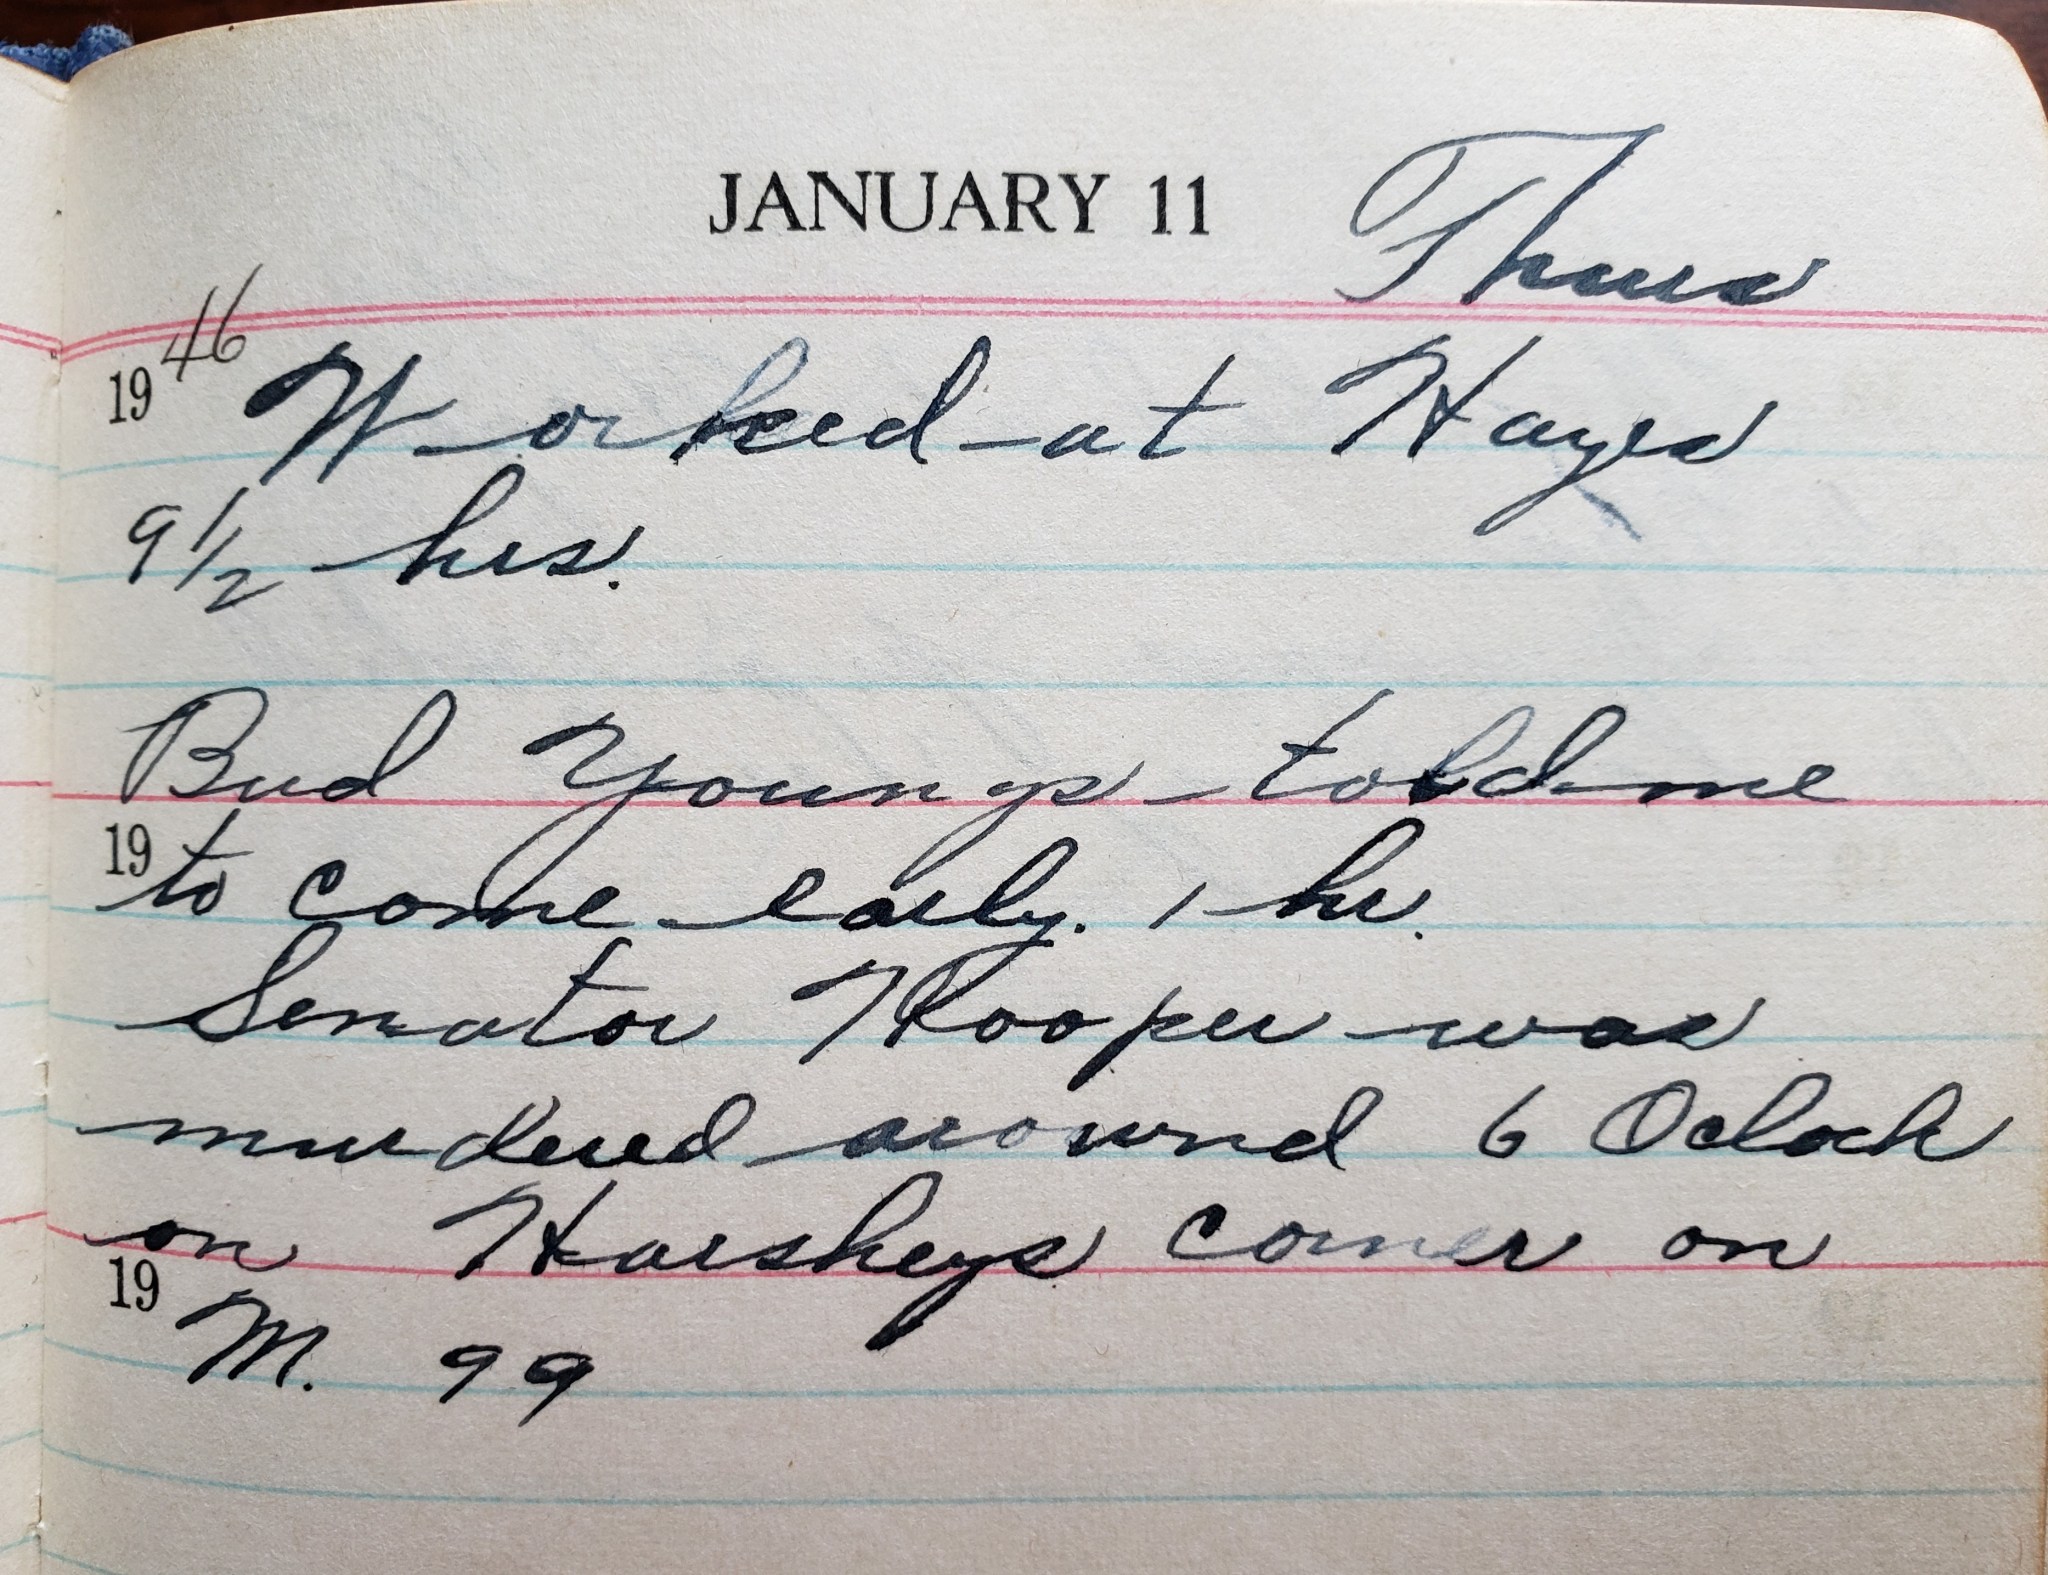 JANUARY 11 Thurs
1946 Worked at Hayes
9 1/2 hrs.
Bud Youngs told me
19 to come early. 1 hr.
Senator Hooper was
murdered around 6 Oclock
on Harsheys corner on
19 M. 99